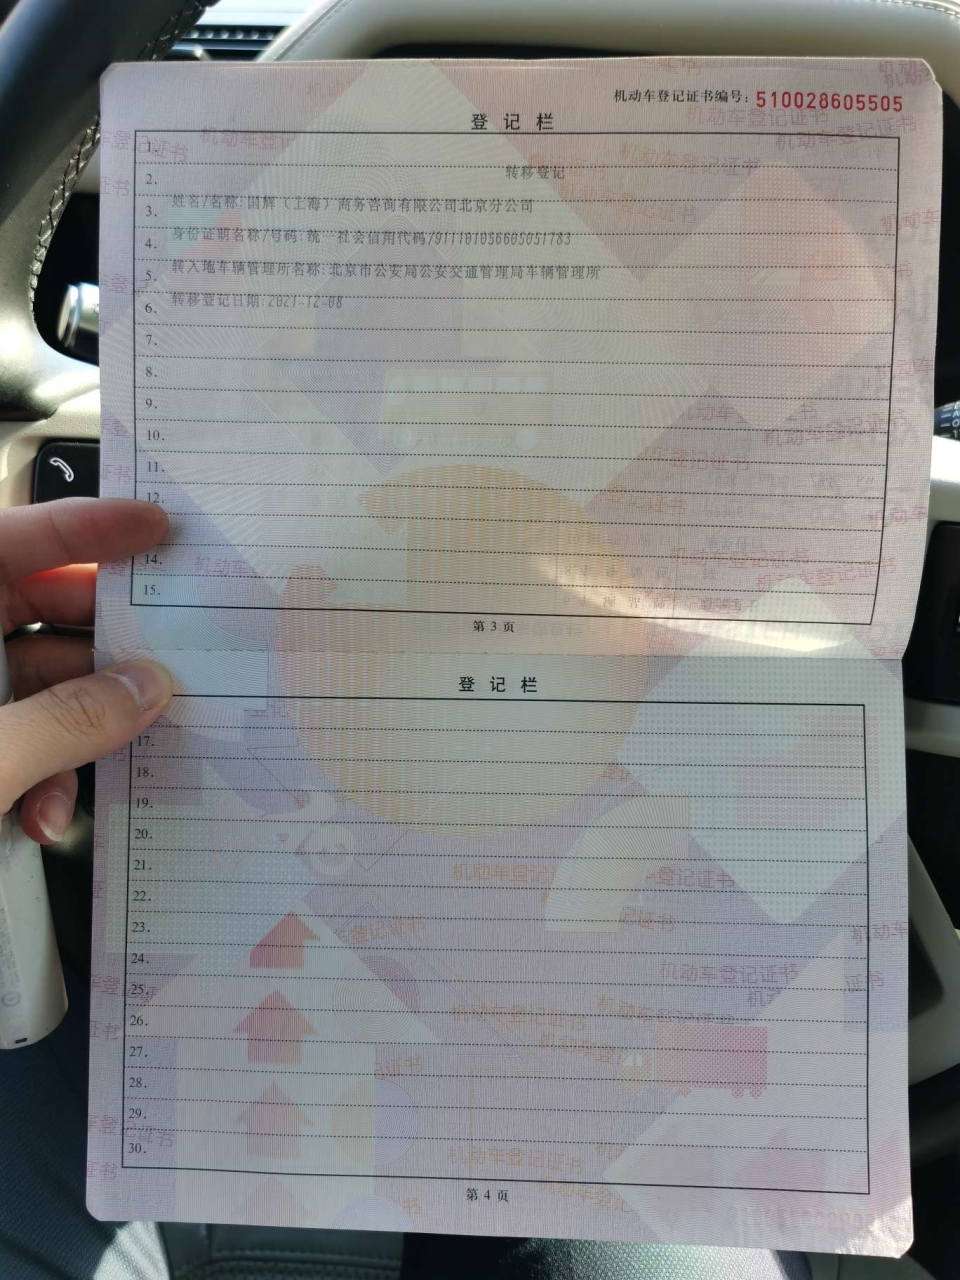 机动车登记证书编号：510028605505
登 记 栏
1.
2. 转移登记
3. 姓名/名称:国辉（上海）商务咨询有限公司北京分公司
4. 身份证明名称/号码:统一社会信用代码/911101056605051783
5. 转入地车辆管理所名称:北京市公安局公安交通管理局车辆管理所
6. 转移登记日期:2021-12-08
7.
8.
9.
10.
11.
12.
14.
15.
第 3 页
登 记 栏
17.
18.
19.
20.
21.
22.
23.
24.
25.
26.
27.
28.
29.
30.
第 4 页